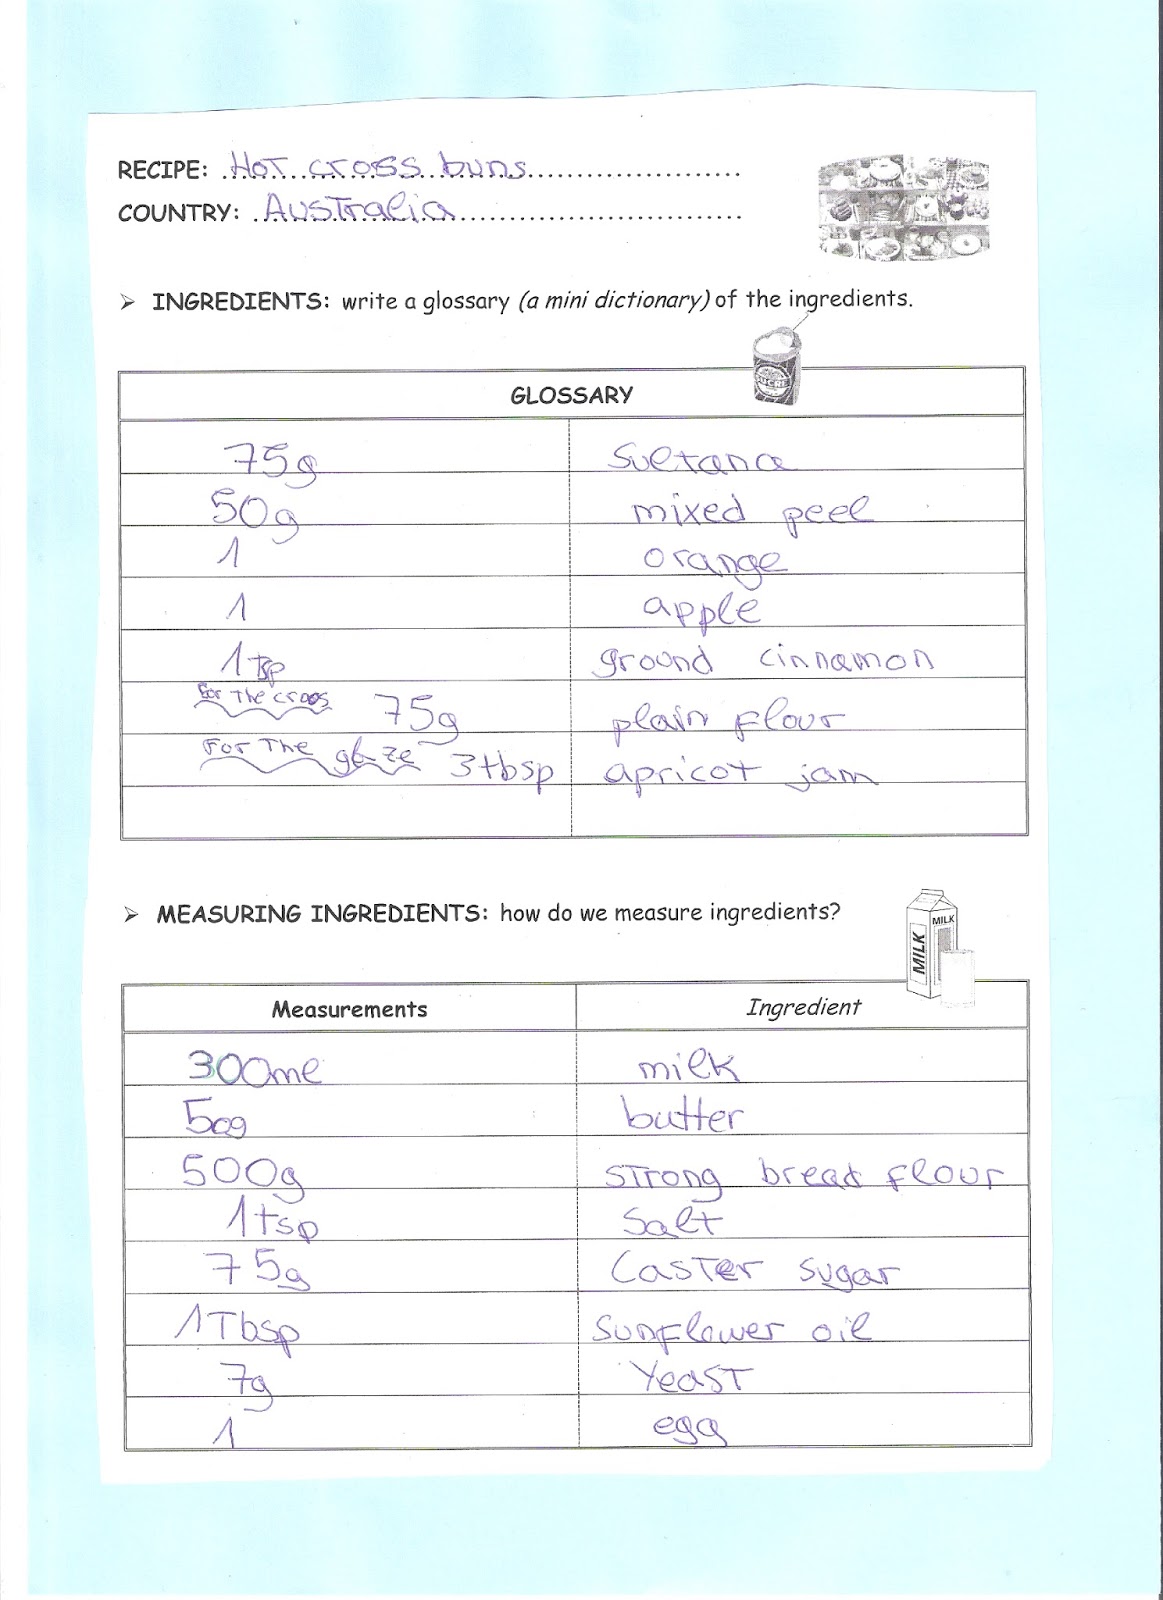 RECIPE: Hot cross buns
COUNTRY: Australia
➢ INGREDIENTS: write a glossary (a mini dictionary) of the ingredients.
SUCRE
GLOSSARY
75g sultana
50g mixed peel
1 orange
1 apple
1 tsp ground cinnamon
For The cross 75g plain flour
For The glaze 3tbsp apricot jam
➢ MEASURING INGREDIENTS: how do we measure ingredients?
MILK MILK
Measurements Ingredient
300ml milk
50g butter
500g strong bread flour
1tsp Salt
75g Caster sugar
1Tbsp sunflower oil
7g Yeast
1 egg